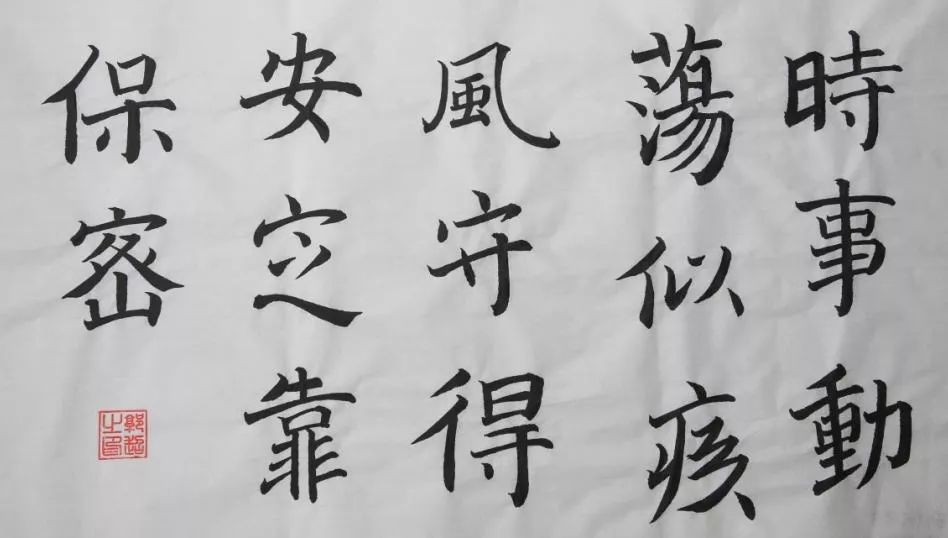 時事動
蕩似疾
風守得
安定靠
保密